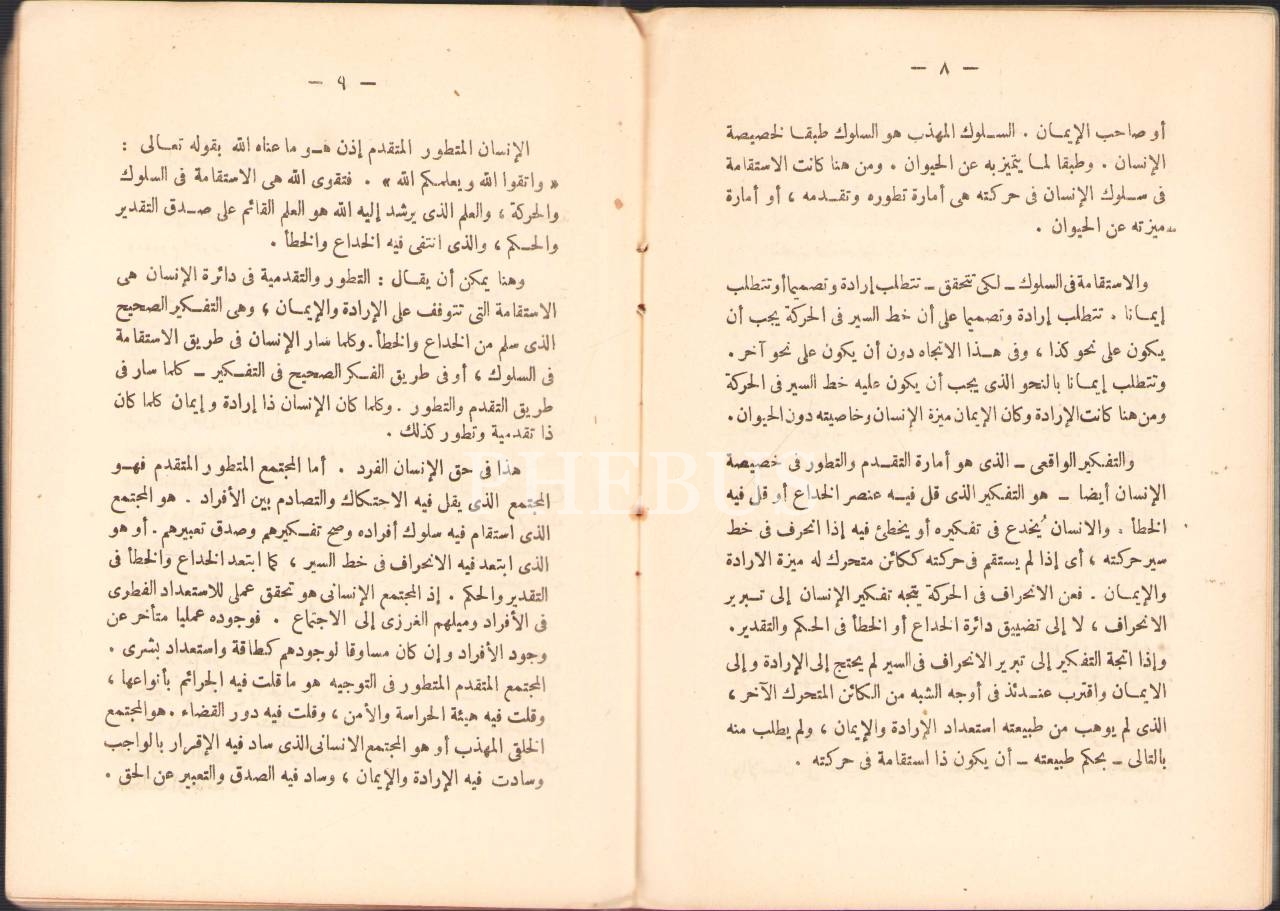 — ٨ —
أو صاحب الإيمـان . السـلوك المهذب هو السلوك طبقـا لخصيصة
الإنسان . وطبقا لمـا يتميز به عن الحيوان . ومن هنا كانت الاستقامة
فى سـلوك الإنسان فى حركته هى أمارة تطوره وتقـدمه ، أو أمارة
ميزته عن الحيوان .
والاستقامة فى السلوك ــ لكى تتحقق ــ تتطلب إرادة وتصميما أو تتطلب
إيمـانا . تتطلب إرادة وتصميما على أن خط السير فى الحركة يجب أن
يكون على نحو كذا ، وفى هـذا الاتجاه دون أن يكون على نحو آخر .
وتتطلب إيمـانا بالنحو الذى يجب أن يكون عليه خط السير فى الحركة
ومن هنا كانت الإرادة وكان الإيمان ميزة الإنسان وخاصيته دون الحيوان .
والتفـكير الواقعى ــ الذى هو أمارة التقـدم والتطور فى خصيصة
الإنسان أيضا ــ هو التفـكير الذى قل فيـه عنصر الخداع أو قل فيه
الخطأ . والانسان يُخدع فى تفـكيره أو يخطئ فيه إذا انحرف فى خط
سير حركته ، أى إذا لم يستقم فى حركته ككائن متحرك له ميزة الارادة
والإيمـان . فعن الانحراف فى الحركة يتجه تفـكير الإنسان إلى تـبرير
الانحراف ، لا إلى تضييق دائرة الخداع أو الخطأ فى الحكم والتقدير .
وإذا اتجة التفـكير إلى تبرير الانحراف فى السير لم يحتج إلى الإرادة وإلى
الايمـان واقترب عنـدئذ فى أوجه الشبه من الكائن المتحرك الآخر ،
الذى لم يوهب من طبيعته استعداد الإرادة والإيمان ، ولم يطلب منه
بالتالى ــ بحكم طبيعته ــ أن يكون ذا استقامة فى حركته .
— ٩ —
الإنسان المتطور المتقدم إذن هـو ما عناه الله بقوله تعـالى :
« واتقوا الله ويعلمكم الله » . فتقوى الله هى الاستقامة فى السلوك
والحركة ، والعلم الذى يرشد إليه الله هو العلم القائم على صـدق التقدير
والحـكم ، والذى انتفى فيه الخداع والخطأ .
وهنا يمكن أن يقـال : التطور والتقدمية فى دائرة الإنسان هى
الاستقامة التى تتوقف على الإرادة والإيمـان ، وهى التفـكير الصحيح
الذى سلم من الخداع والخطأ . وكلما سار الإنسان فى طريق الاستقامة
فى السلوك ، أو فى طريق الفـكر الصحيح فى التفـكير ــ كلما سار فى
طريق التقدم والتطور . وكلما كان الإنسان ذا إرادة وإيمان كلما كان
ذا تقدمية وتطور كذلك .
هذا فى حق الإنسان الفرد . أما المجتمع المتطور المتقدم فهـو
المجتمع الذى يقل فيه الاحتكاك والتصادم بين الأفراد . هو المجتمع
الذى استقام فيه سلوك أفراده وصح تفـكيرهم وصدق تعبيرهم . أو هو
الذى ابتعد فيه الانحراف فى خط السير ، كما ابتعد الخداع والخطأ فى
التقدير والحكم . إذ المجتمع الإنسانى هو تحقق عملى للاستعداد الفطرى
فى الأفراد وميلهم الغرزى إلى الاجتماع . فوجوده عمليا متأخر عن
وجود الأفراد وإن كان مساوقا لوجودهم كطاقة واستعداد بشرى .
المجتمع المتقدم المتطور فى التوجيه هو ما قلت فيه الجرائم بأنواعها ،
وقلت فيه هيئة الحراسة والأمن ، وقلت فيه دور القضاء . هو المجتمع
الخلقى المهذب أو هو المجتمع الانسانى الذى ساد فيه الإقرار بالواجب
وسادت فيه الإرادة والإيمان ، وساد فيه الصدق والتعبير عن الحق .
PHEBUS